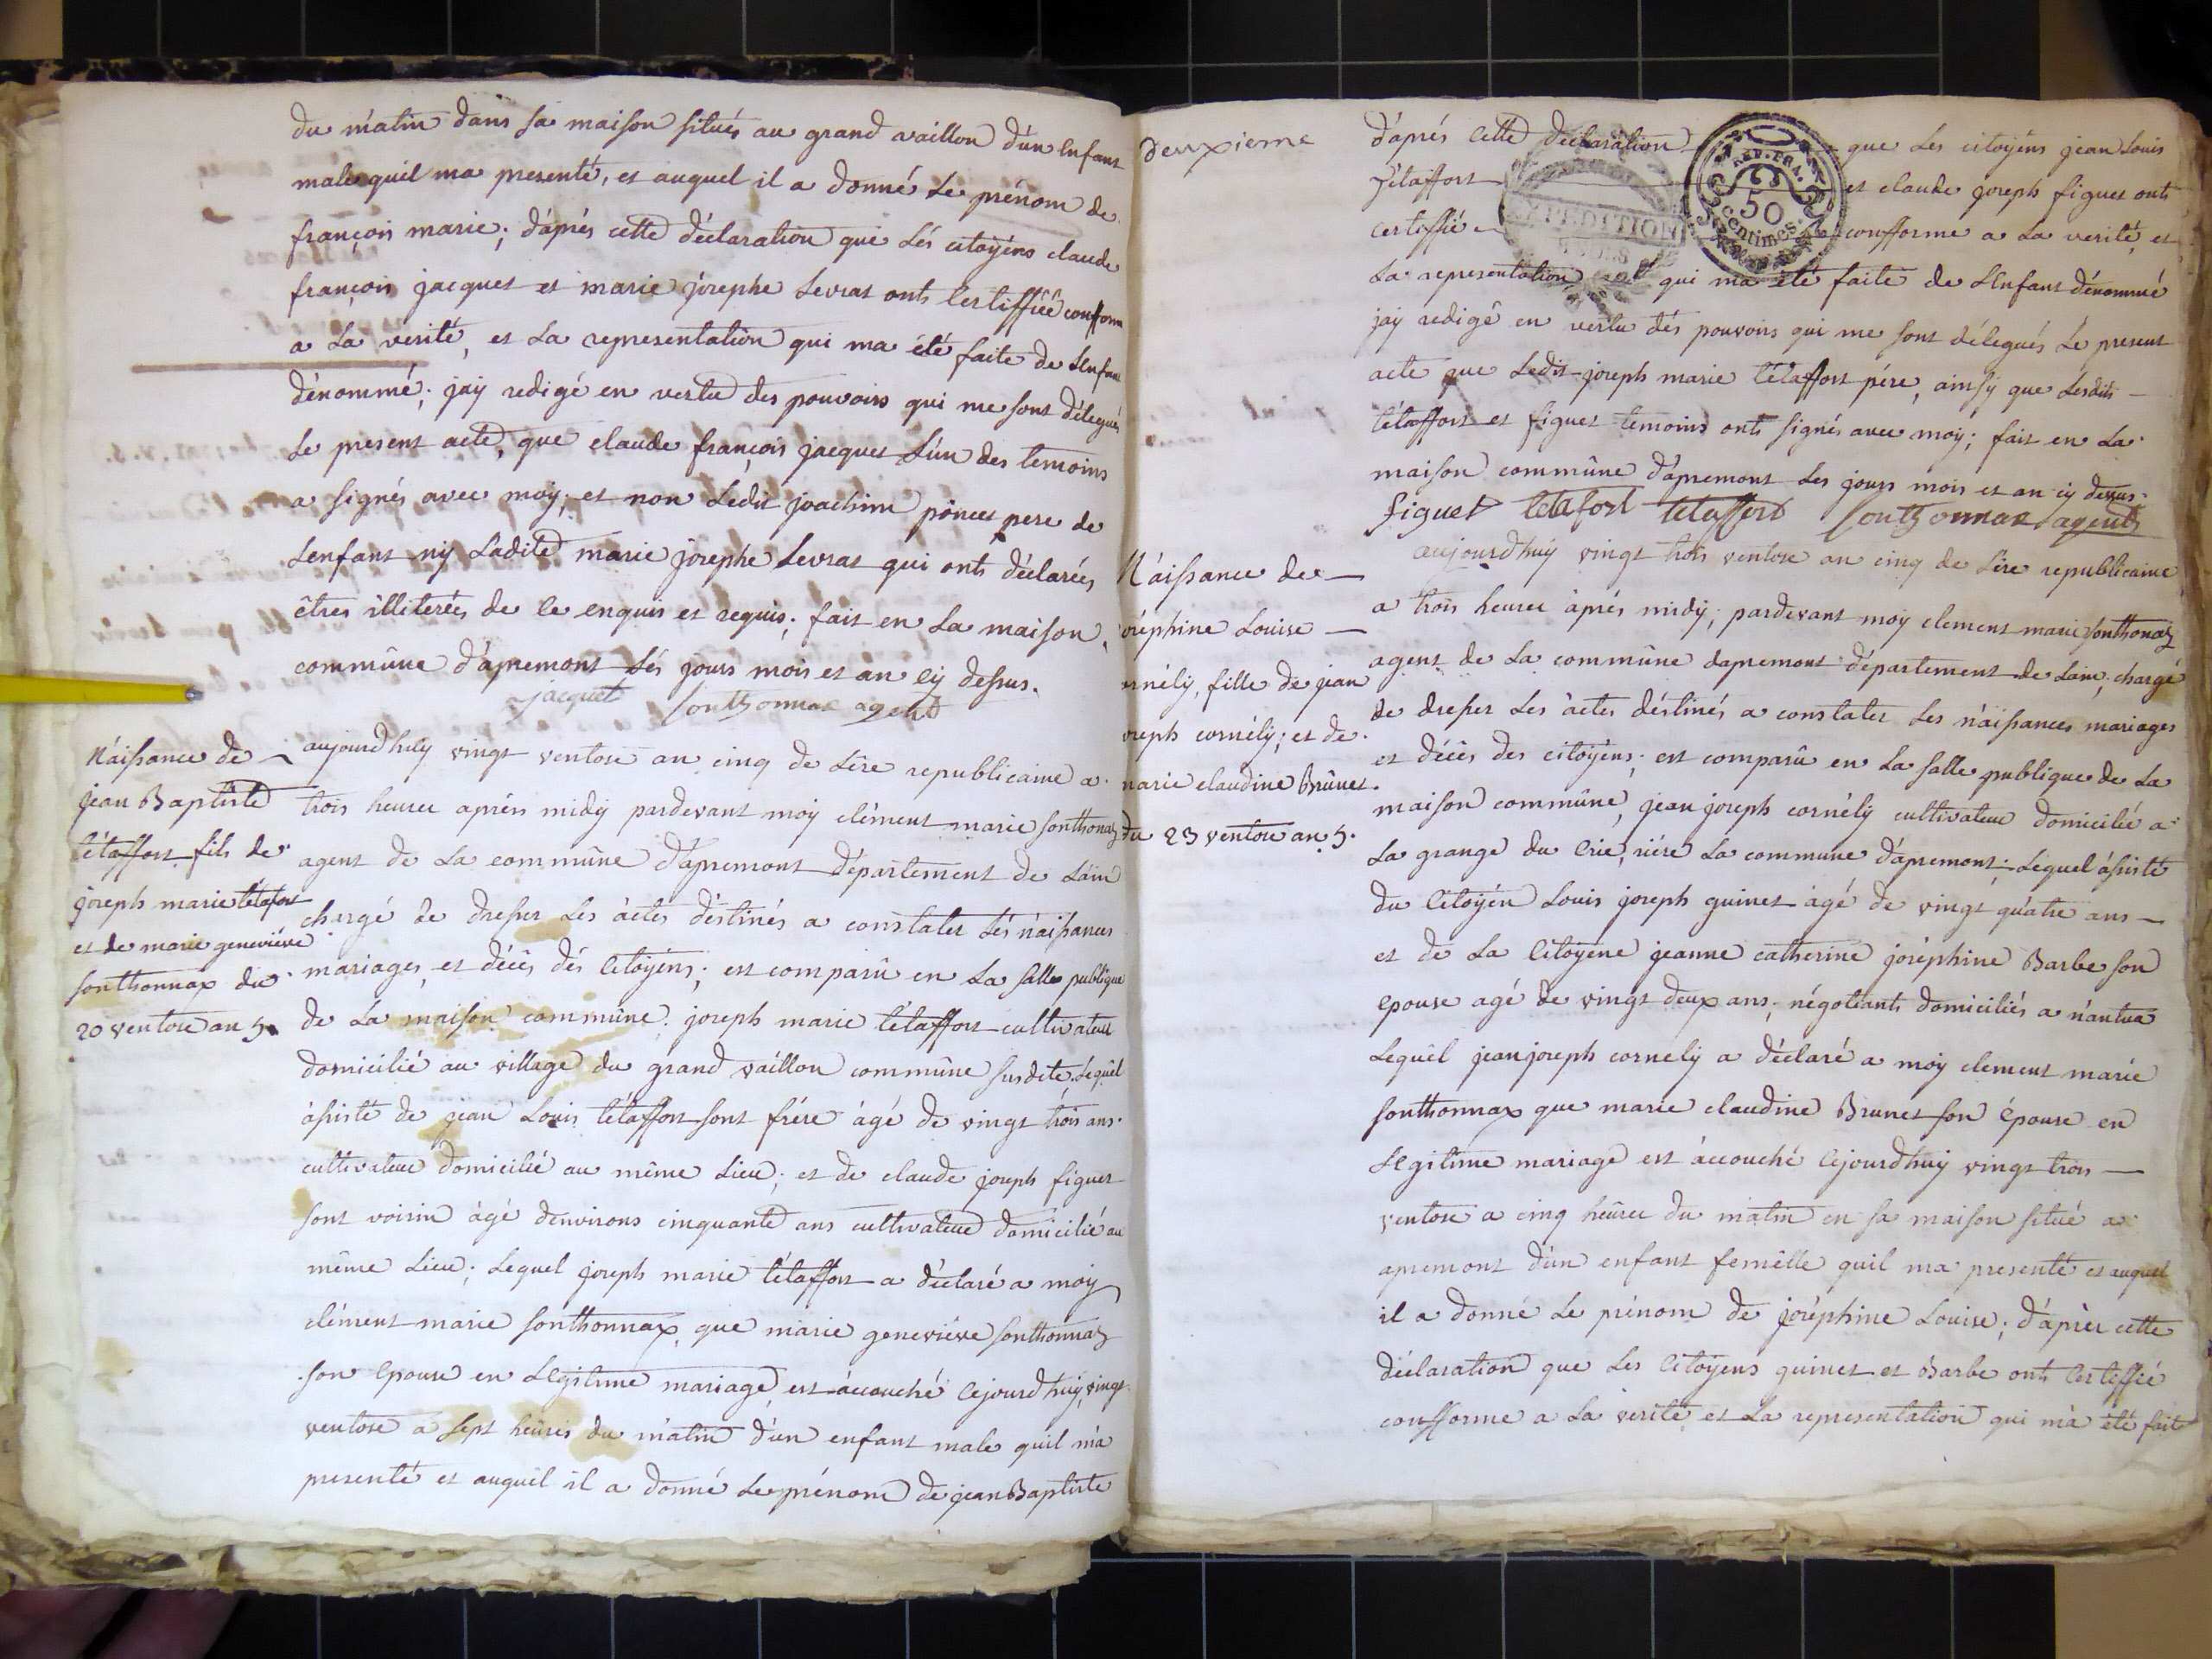 du matin dans sa maison situés au grand vaillon d'un Enfant
male quil ma presenté, et auquel il a donné Le prénom de
françois marie; d'aprés cette déclaration que Lés citoyéns claude
françois jacquet et marie jósephe Levrat onts Certiffiéé conform
a La verité, et La representation qui ma été faite de Lenfant
dénommé; jaÿ redigé en vertu des pouvoirs qui me sont délegués
Le present acte, que claude françois jacquet L'ún des temoins
a signés avec moÿ; et non Ledit joachim poncet pere de
Lenfant nÿ Ladite marie josephe Levrat qui onts déclarées
êtres illiterées de Ce enquis et requis; fait en La maison
commûne d'apremont Lés jours mois et an Cÿ dessus.
jacquet sonthonnax agent
Náissance de
jean Baptiste
tétaffort fils de
joseph marie tétafort
et de marie geneviéve
sonthonnax du
20 ventose an 5.
aujourdhuÿ vingt ventose an cinq de Lére republicaine a
trois heures aprés midÿ pardevant moÿ clément marie sonthonax
agent de La commûne d'apremont département de Láin
chargé de dresser Les áctes déstinés a constater Lés náissances
mariages, et décés dés Citoÿens; est comparû en La salle publique
de La maison commûne; joseph marie tétaffort cultivateur
domicilié au village du grand váillon commûne susdite, Lequél
ássisté de jean Louis tétaffort sont frére ágé de vingt trois ans
cultivateur domicilié au même Lieu; et de claude joseph figuet
sont voisin ágé denvirons cinquante ans cultivateur domicilié au
même Lieu; Lequel joseph marie tétaffort a déclaré a moÿ
clément marie sonthonnax, que marie geneviéve sonthonnax
son Epouse en Légitime mariage, est áccouché Cejourdhuÿ vingt
ventose a sept heûres du mátin d'un enfant male quil má
presenté et auquél il a donné Le prénom de jean Baptiste
Deuxieme
d'aprés Cette déclaration que Les citoyéns jean Louis
tétaffort et claude joseph figuet onts
certiffié confforme a La verité, et
La representation qui ma été faite de LEnfant dénommé
jaÿ redigé en vertu dés pouvoirs qui me sont délegués Le present
acte que Ledit joseph marie tétaffort pére, ainsÿ que Lesdits
tétaffort et figuet temoins onts signés avec moÿ; fait en La
maison commûne d'apremont Les jours mois et an cÿ dessus.
figuet tétafort tétaffort sonthonnax agent
EXPEDITION
REP. FRA.
50
centimes
Náissance de
oséphine Louise
ornélÿ, fille de jean
oseph cornélÿ; et de
marie claudine Brûnet.
du 23 ventose an 5.
aujourdhuÿ vingt trois ventose an cinq de Lére republicaine
a trois heures áprés midÿ; pardevant moÿ clement marie sonthonax
agent de La commûne dapremont département de Lain; chargé
de dresser Les áctes déstinés a constater Les náissances mariages
et décés des citoÿéns; est comparû en La salle publique de La
maison commûne, jean joseph cornélÿ cultivateur domicilié a
La grange du Crie, riére La commune d'apremont; Lequel ássisté
du Citoÿén Louis joseph guinet ágé de vingt quatre ans
et de La Citoÿene jeanne catherine joséphine Barbe son
epouse agé de vingt deux ans; négotiants domiciliés a nántua
Lequêl jean joseph cornelÿ a déclaré a moÿ clement marie
sonthonnax que marie claudine Brunet son épouse en
LEgitime mariage est áccouché Cejourdhuÿ vingt trois
ventose a cinq heûres du matin en sa maison situé a
apremont d'un enfant femêlle quil ma presenté et auquel
il a donné Le prénom de joséphine Louise; d'áprès cette
déclaration que Les Citoÿens guinet et Barbe onts Certiffié
confforme a La verité et La representation qui má été fait